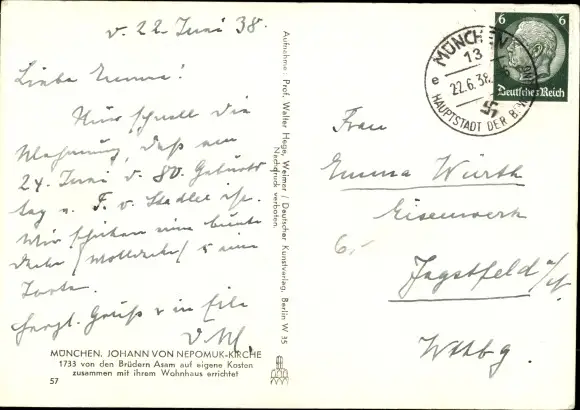 v. 22. Juni 38.
Liebe Emma!
Nur schnell die
Mahnung, daß am
24. Juni d. 80. Geburts
tag v. F. v. Stadler ist.
Wir schicken eine bunte
Decke /Wolldecke/ & eine
Torte.
Herzl. Gruß & in Eile
MÜNCHEN. JOHANN VON NEPOMUK-KIRCHE
1733 von den Brüdern Asam auf eigene Kosten
zusammen mit ihrem Wohnhaus errichtet
57
Aufnahme: Prof. Walter Hege, Weimar / Deutscher Kunstverlag, Berlin W 35
Nachdruck verboten.
MÜNCHEN
13
e
22.6.38.
HAUPTSTADT DER
6 6
Deutsches Reich
Frau
Emma Würth
Eisenwerk
6.-
Jagstfeld a/
Wttbg.